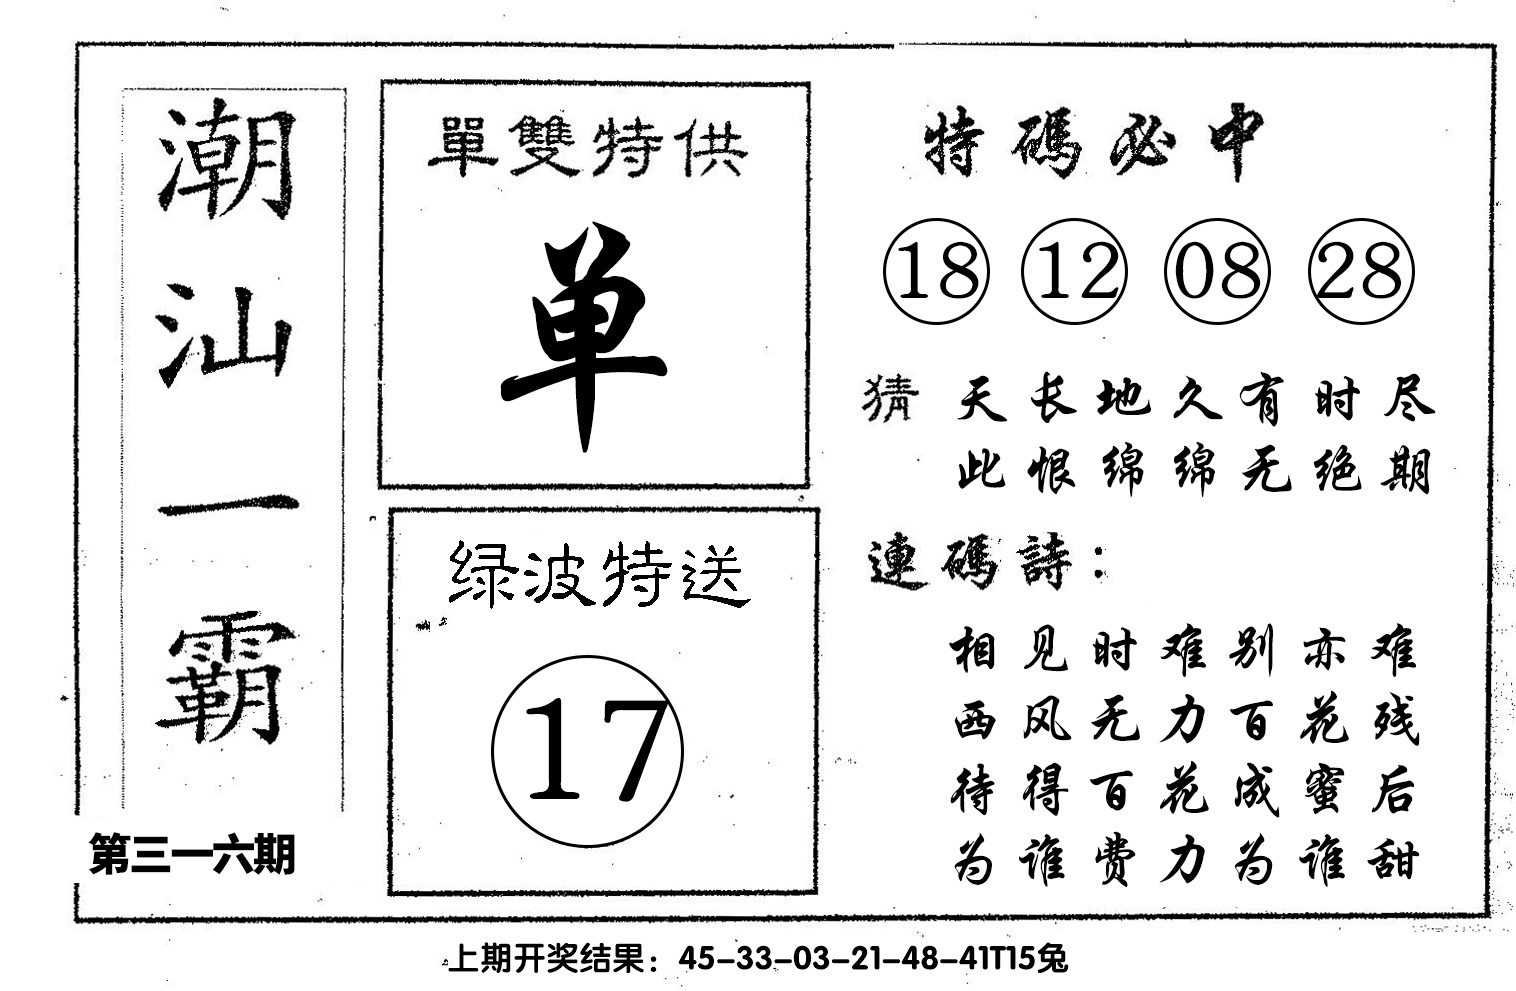 潮汕一霸
第三一六期
單雙特供
单
绿波特送
17
特碼必中
18 12 08 28
猜 天长地久有时尽
此恨绵绵无绝期
連碼詩：
相见时难别亦难
西风无力百花残
待得百花成蜜后
为谁费力为谁甜
上期开奖结果：45-33-03-21-48-41T15兔